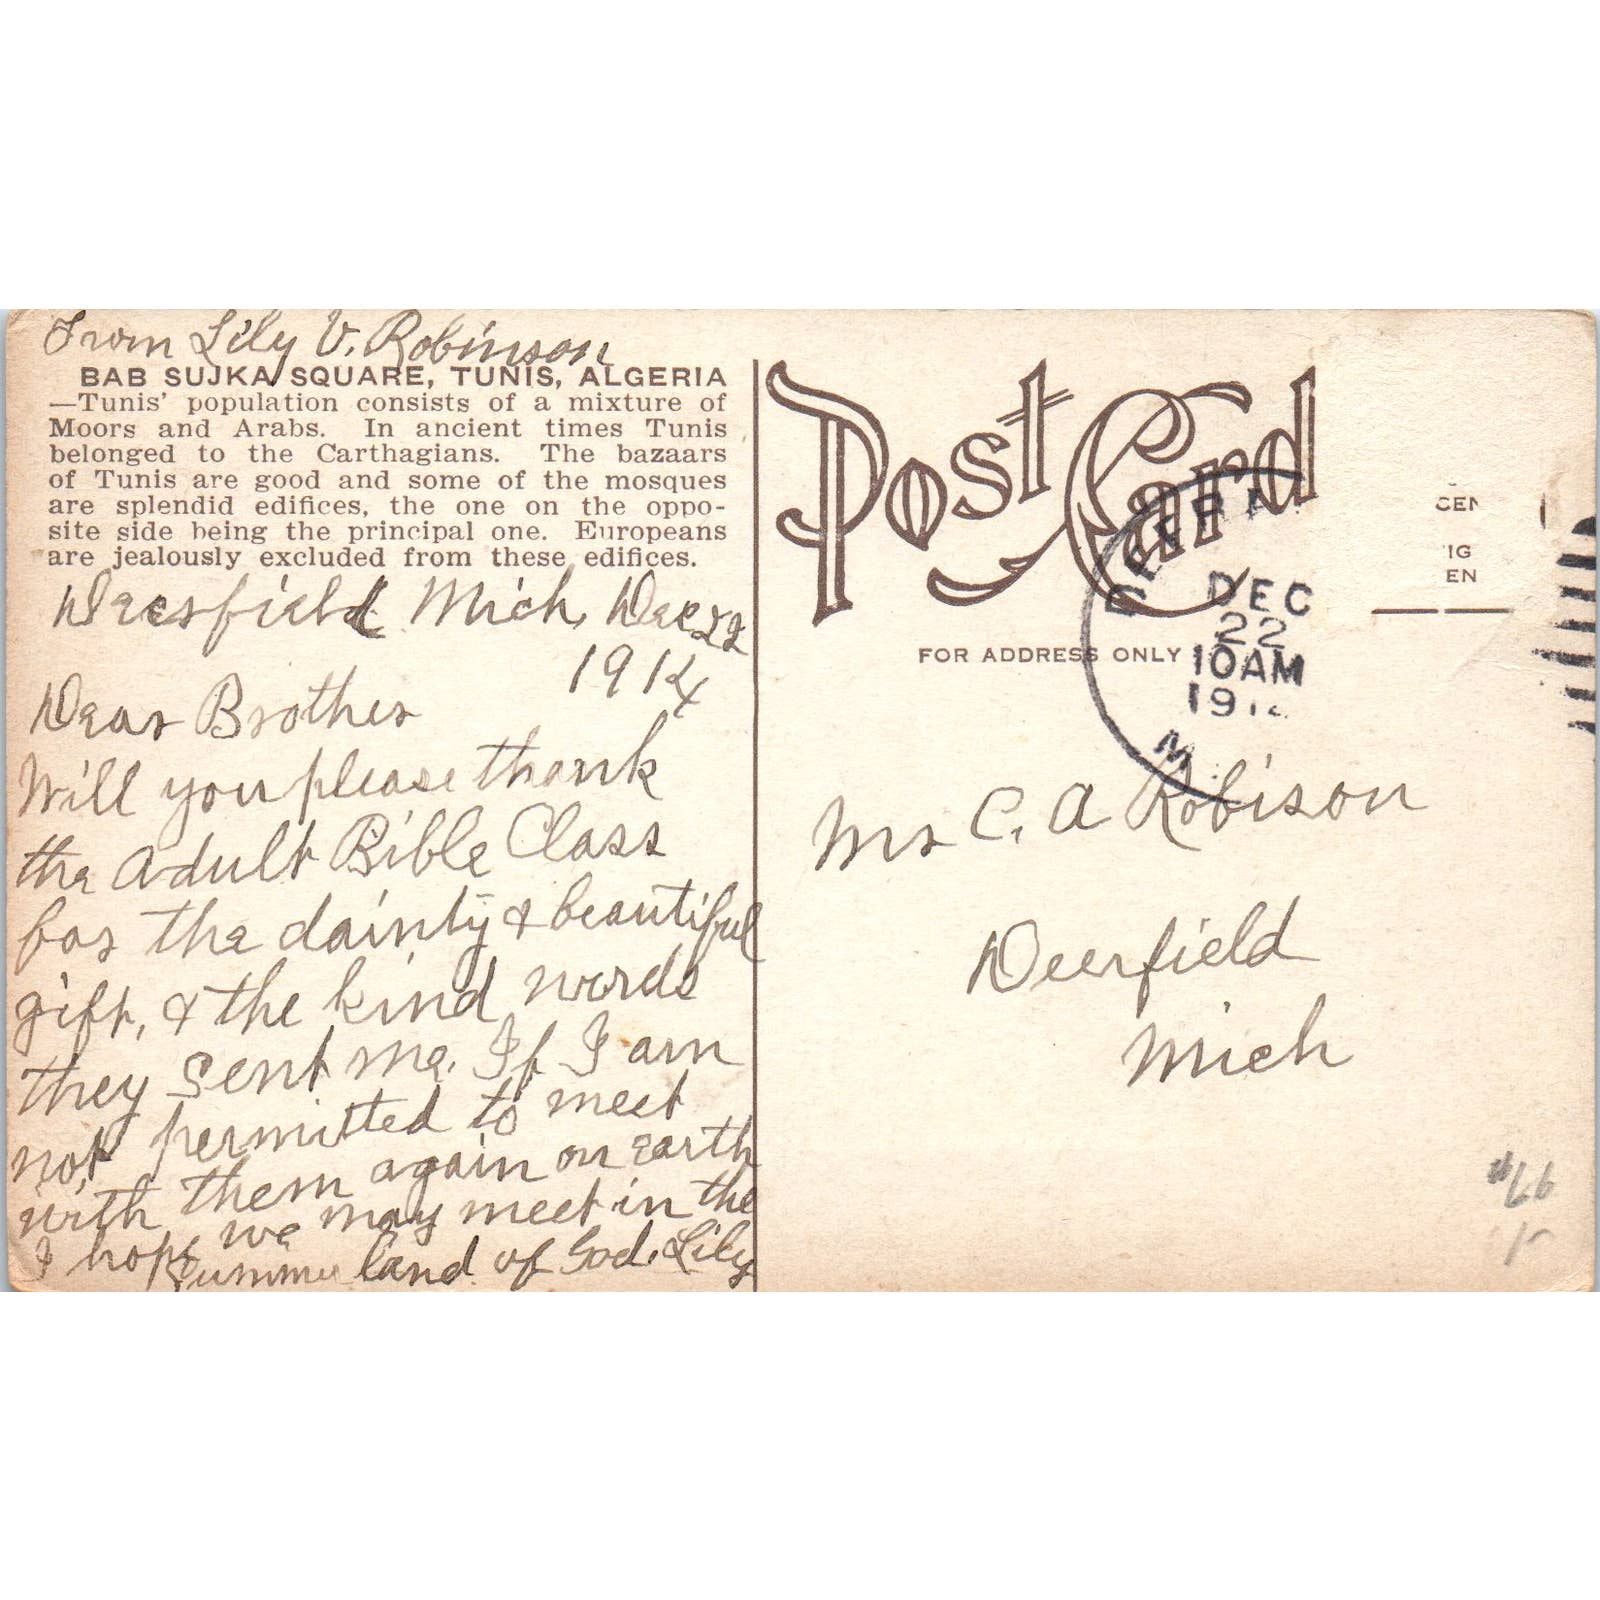 From Lily V. Robinson
BAB SUJKA SQUARE, TUNIS, ALGERIA
—Tunis' population consists of a mixture of
Moors and Arabs. In ancient times Tunis
belonged to the Carthagians. The bazaars
of Tunis are good and some of the mosques
are splendid edifices, the one on the oppo-
site side being the principal one. Europeans
are jealously excluded from these edifices.
Deerfield Mich, Dec 22
1914
Dear Brother
Will you please thank
the Adult Bible Class
for the dainty & beautiful
gift, & the kind words
they sent me. If I am
not permitted to meet
with them again on earth
I hope we may meet in the
Summer land of God. Lily
Post Card
FOR ADDRESS ONLY
DEC
22
10AM
191
M
CEN
IG
EN
Mr C. A Robison
Deerfield
Mich